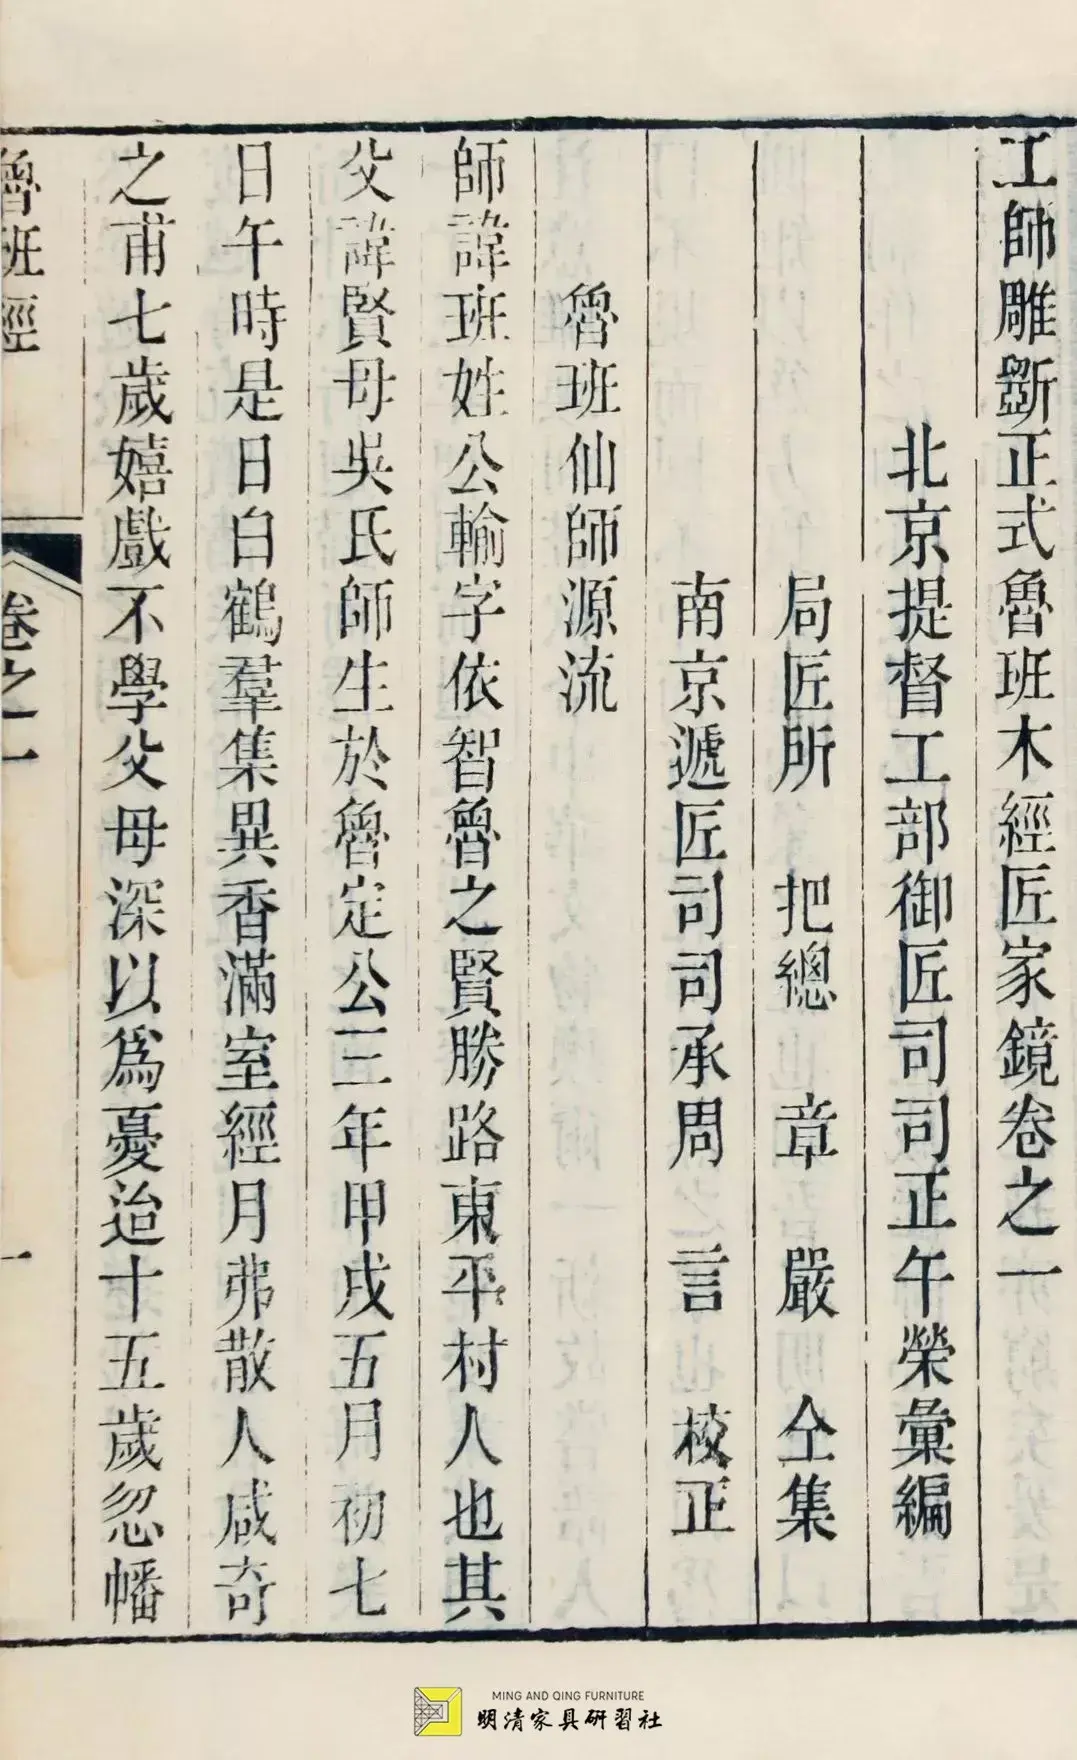 工師雕斲正式魯班木經匠家鏡卷之一
北京提督工部御匠司司正午榮彙編
局匠所把總章嚴仝集
南京遞匠司司承周言校正
魯班仙師源流
師諱班姓公輸字依智魯之賢勝路東平村人也其
父諱賢母吳氏師生於魯定公三年甲戌五月初七
日午時是日白鶴羣集異香滿室經月弗散人咸奇
之甫七歲嬉戲不學父母深以爲憂迨十五歲忽幡
魯班經
卷之一
一
MING AND QING FURNITURE
明清家具研習社